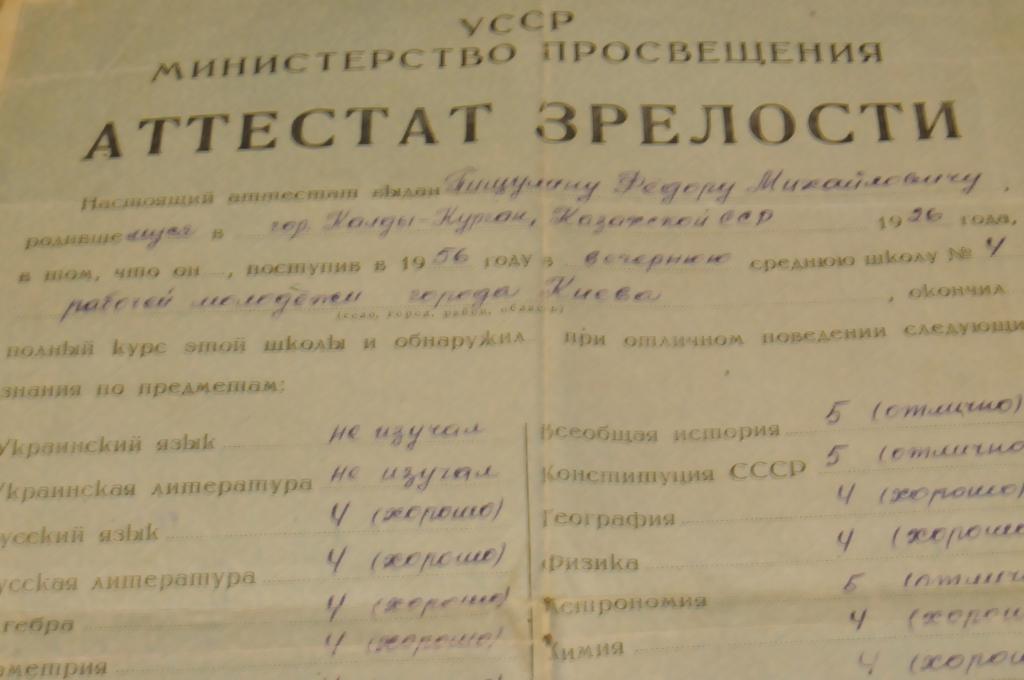 УССР
МИНИСТЕРСТВО ПРОСВЕЩЕНИЯ
АТТЕСТАТ ЗРЕЛОСТИ
Настоящий аттестат выдан Пищулину Федору Михайловичу,
родившемуся в гор. Талды-Курган, Казахской ССР 1926 года,
в том, что он, поступив в 1956 году в вечернюю среднюю школу № 4
рабочей молодёжи города Киева, окончил
(село, город, район, область)
полный курс этой школы и обнаружил при отличном поведении следующи
знания по предметам:
Украинский язык не изучал
Украинская литература не изучал
усский язык 4 (хорошо)
усская литература 4 (хорошо)
гебра 4 (хорошо)
ометрия 4 (хорошо)
Всеобщая история 5 (отлично)
Конституция СССР 5 (отлично
География 4 (хорошо)
Физика 4 (хорошо
Астрономия 5 (отличн
Химия 4 (хорош
4 (хорош